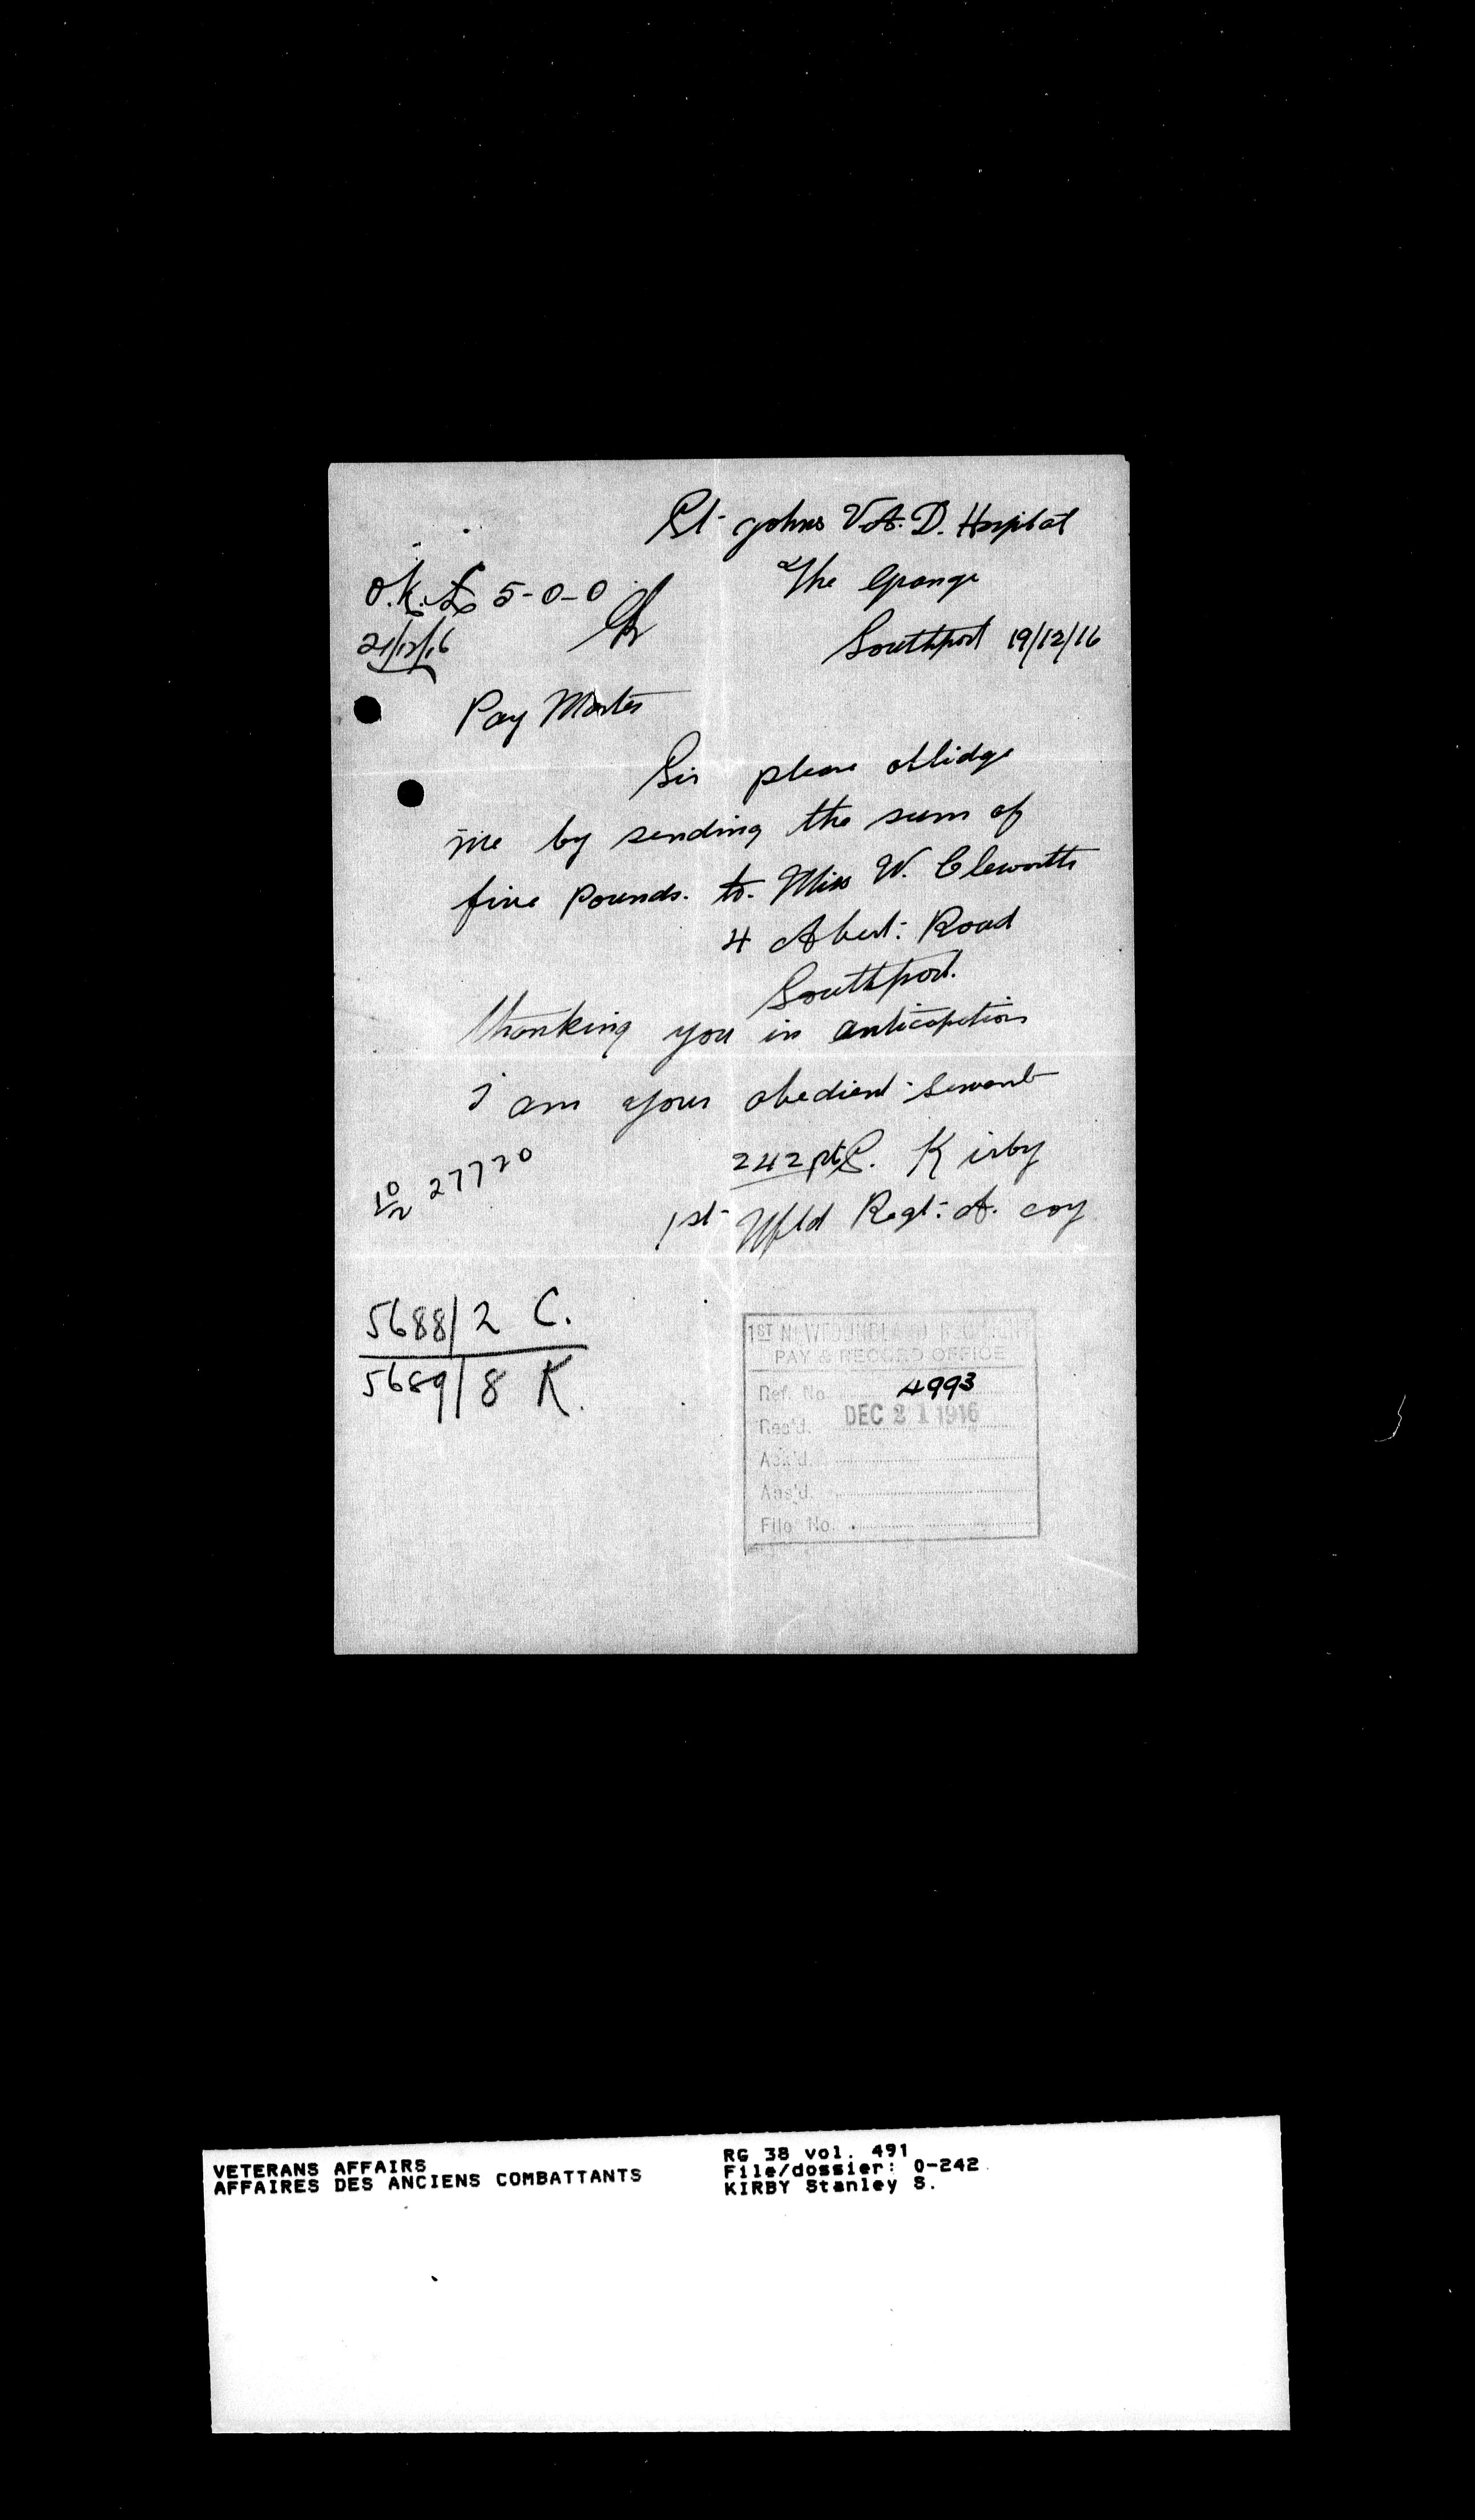 St- Johns V.A.D. Hospital
The Grange
O.K. £5-0-0
21/12/16
Southport 19/12/16
Pay Master
Sir please oblidge
me by sending the sum of
five Pounds. to. Miss W. Cleworth
4 Albert: Road
Southport.
thanking you in anticapation
I am your obedient servant
242 pte S. Kirby
1st- Nfld Regt: A. coy
27720
5688/2 C.
5689/8 K.
1ST NEWFOUNDLAND REGIMENT
PAY & RECORD OFFICE
Ref. No. 4993
Rec'd. DEC 21 1916
Ack'd.
Ans'd.
File No.
VETERANS AFFAIRS
AFFAIRES DES ANCIENS COMBATTANTS
RG 38 vol. 491
File/dossier: 0-242
KIRBY Stanley S.